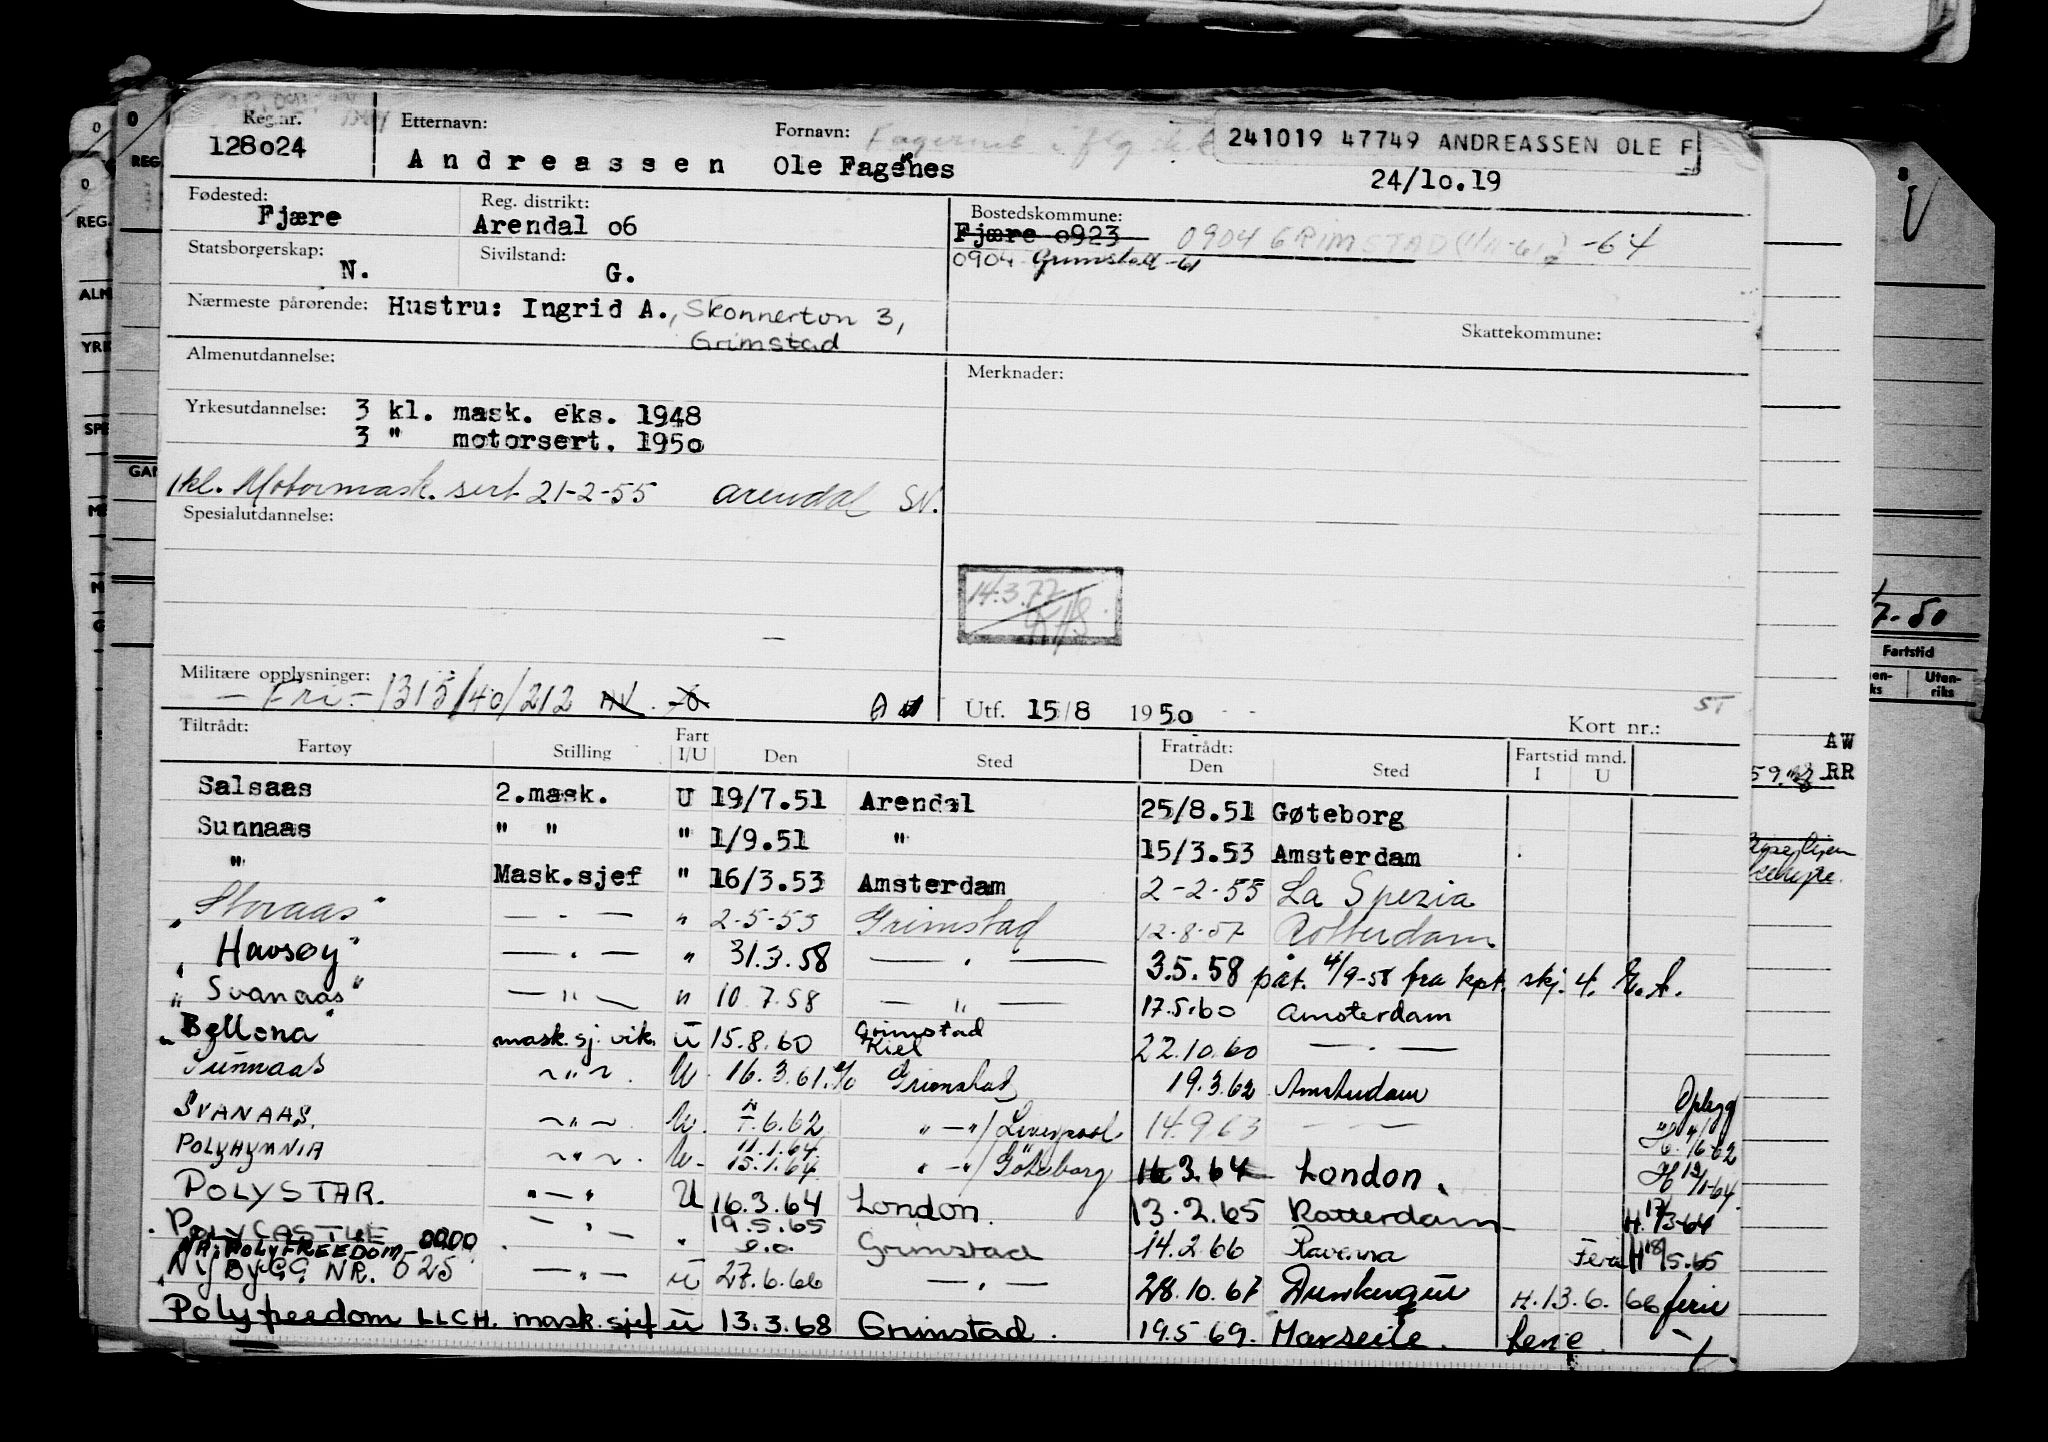 Reg.nr.
128o24
Etternavn:
Andreassen
Fornavn:
Ole Fagernes
241019 47749 ANDREASSEN OLE F
24/10.19
Fødested:
Fjære
Reg. distrikt:
Arendal o6
Bostedskommune:
Fjære o923
0904 GRIMSTAD -64
0904 Grimstad -61
Statsborgerskap:
N.
Sivilstand:
G.
Nærmeste pårørende: Hustru: Ingrid A., Skonnertvn 3,
Grimstad
Skattekommune:
Almenutdannelse:
Merknader:
Yrkesutdannelse: 3 kl. mask. eks. 1948
3 " motorsert. 195o
1kl. Motormask. sert 21-2-55 Arendal SN.
Spesialutdannelse:
14.3.77
Militære opplysninger:
- Fri - 1315/40/212
Utf. 15/8 195o
Kort nr.:
ST
Tiltrådt:
Fartøy Stilling Fart I/U Den Sted Fratrådt: Den Sted Fartstid mnd. I U
Salsaas 2.mask. U 19/7.51 Arendal 25/8.51 Gøteborg
Sunnaas " " " 1/9.51 " 15/3.53 Amsterdam
" Mask.sjef " 16/3.53 Amsterdam 2-2-55 La Spezia
"Storaas" — - — " 2-5-55 Grimstad 12-8-57 Rotterdam
"Havsøy" — - — " 31.3.58 — - — 3.5.58 påt. 4/9-58 fra kpt. skj. 4.
"Svanaas" — " — " 10.7.58 — " — 17.5.60 Amsterdam
"Bellona" mask.sj. vik. U 15.8.60 Grimstad Kiel 22.10.60 — - —
Sunnaas ~ " ~ U. 16.3.61. Grimstad 19.3.62 Amsterdam
SVANAAS. ~ " ~ U. 7.6.62 " — "/Liverpool. 14.9.63 — —
Opbygg
POLYHYMNIA ~ " ~ U. 11.1.64 15.1.64 " — "/Göteborg 16.3.64 London.
POLYSTAR. " — " U 16.3.64 London. 13.2.65 Rotterdam
H. 17/3-64
POLYCASTLE 0000 — " — " 19.5.65 Grimstad 14.2.66 Ravenna
H 18/5.65
POLYFREEDOM
"NYBYGG NR. 525 — " — U 27.6.66 — " — 28.10.67 Dunkerque H.13.6.66 ferie
Polyfreedom LLCH. mask.sjef U 13.3.68 Grimstad. 19.5 69. Marseile. ferie
REG.
YRK
SPE
7-50
Fartstid
Uten-
riks
AW
RR